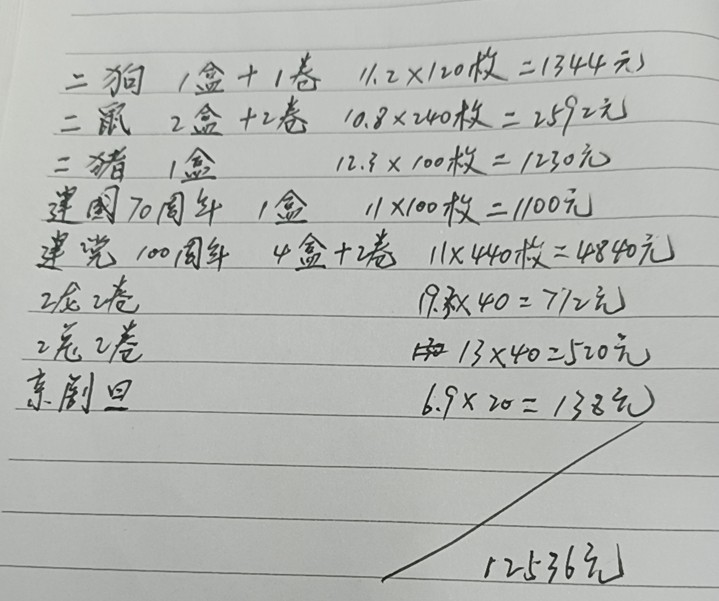 二狗 1盒+1卷 11.2×120枚=1344元
二鼠 2盒+2卷 10.8×240枚=2592元
二猪 1盒 12.3×100枚=1230元
建国70周年 1盒 11×100枚=1100元
建党100周年 4盒+2卷 11×440枚=4840元
2龙2卷 19.3×40=772元
2兔2卷 13×40=520元
京剧旦 6.9×20=138元
12536元